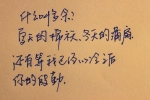 什么多余?
夏天的棉袄、冬天的蒲扇
还有等我已经心冷后
你的殷勤。